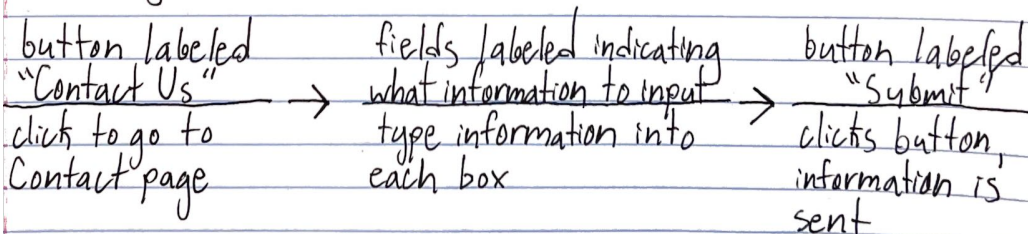 button labeled
"Contact Us"
click to go to
Contact page
fields labeled indicating
what information to input
type information into
each box
button labeled
"Submit"
clicks button,
information is
sent